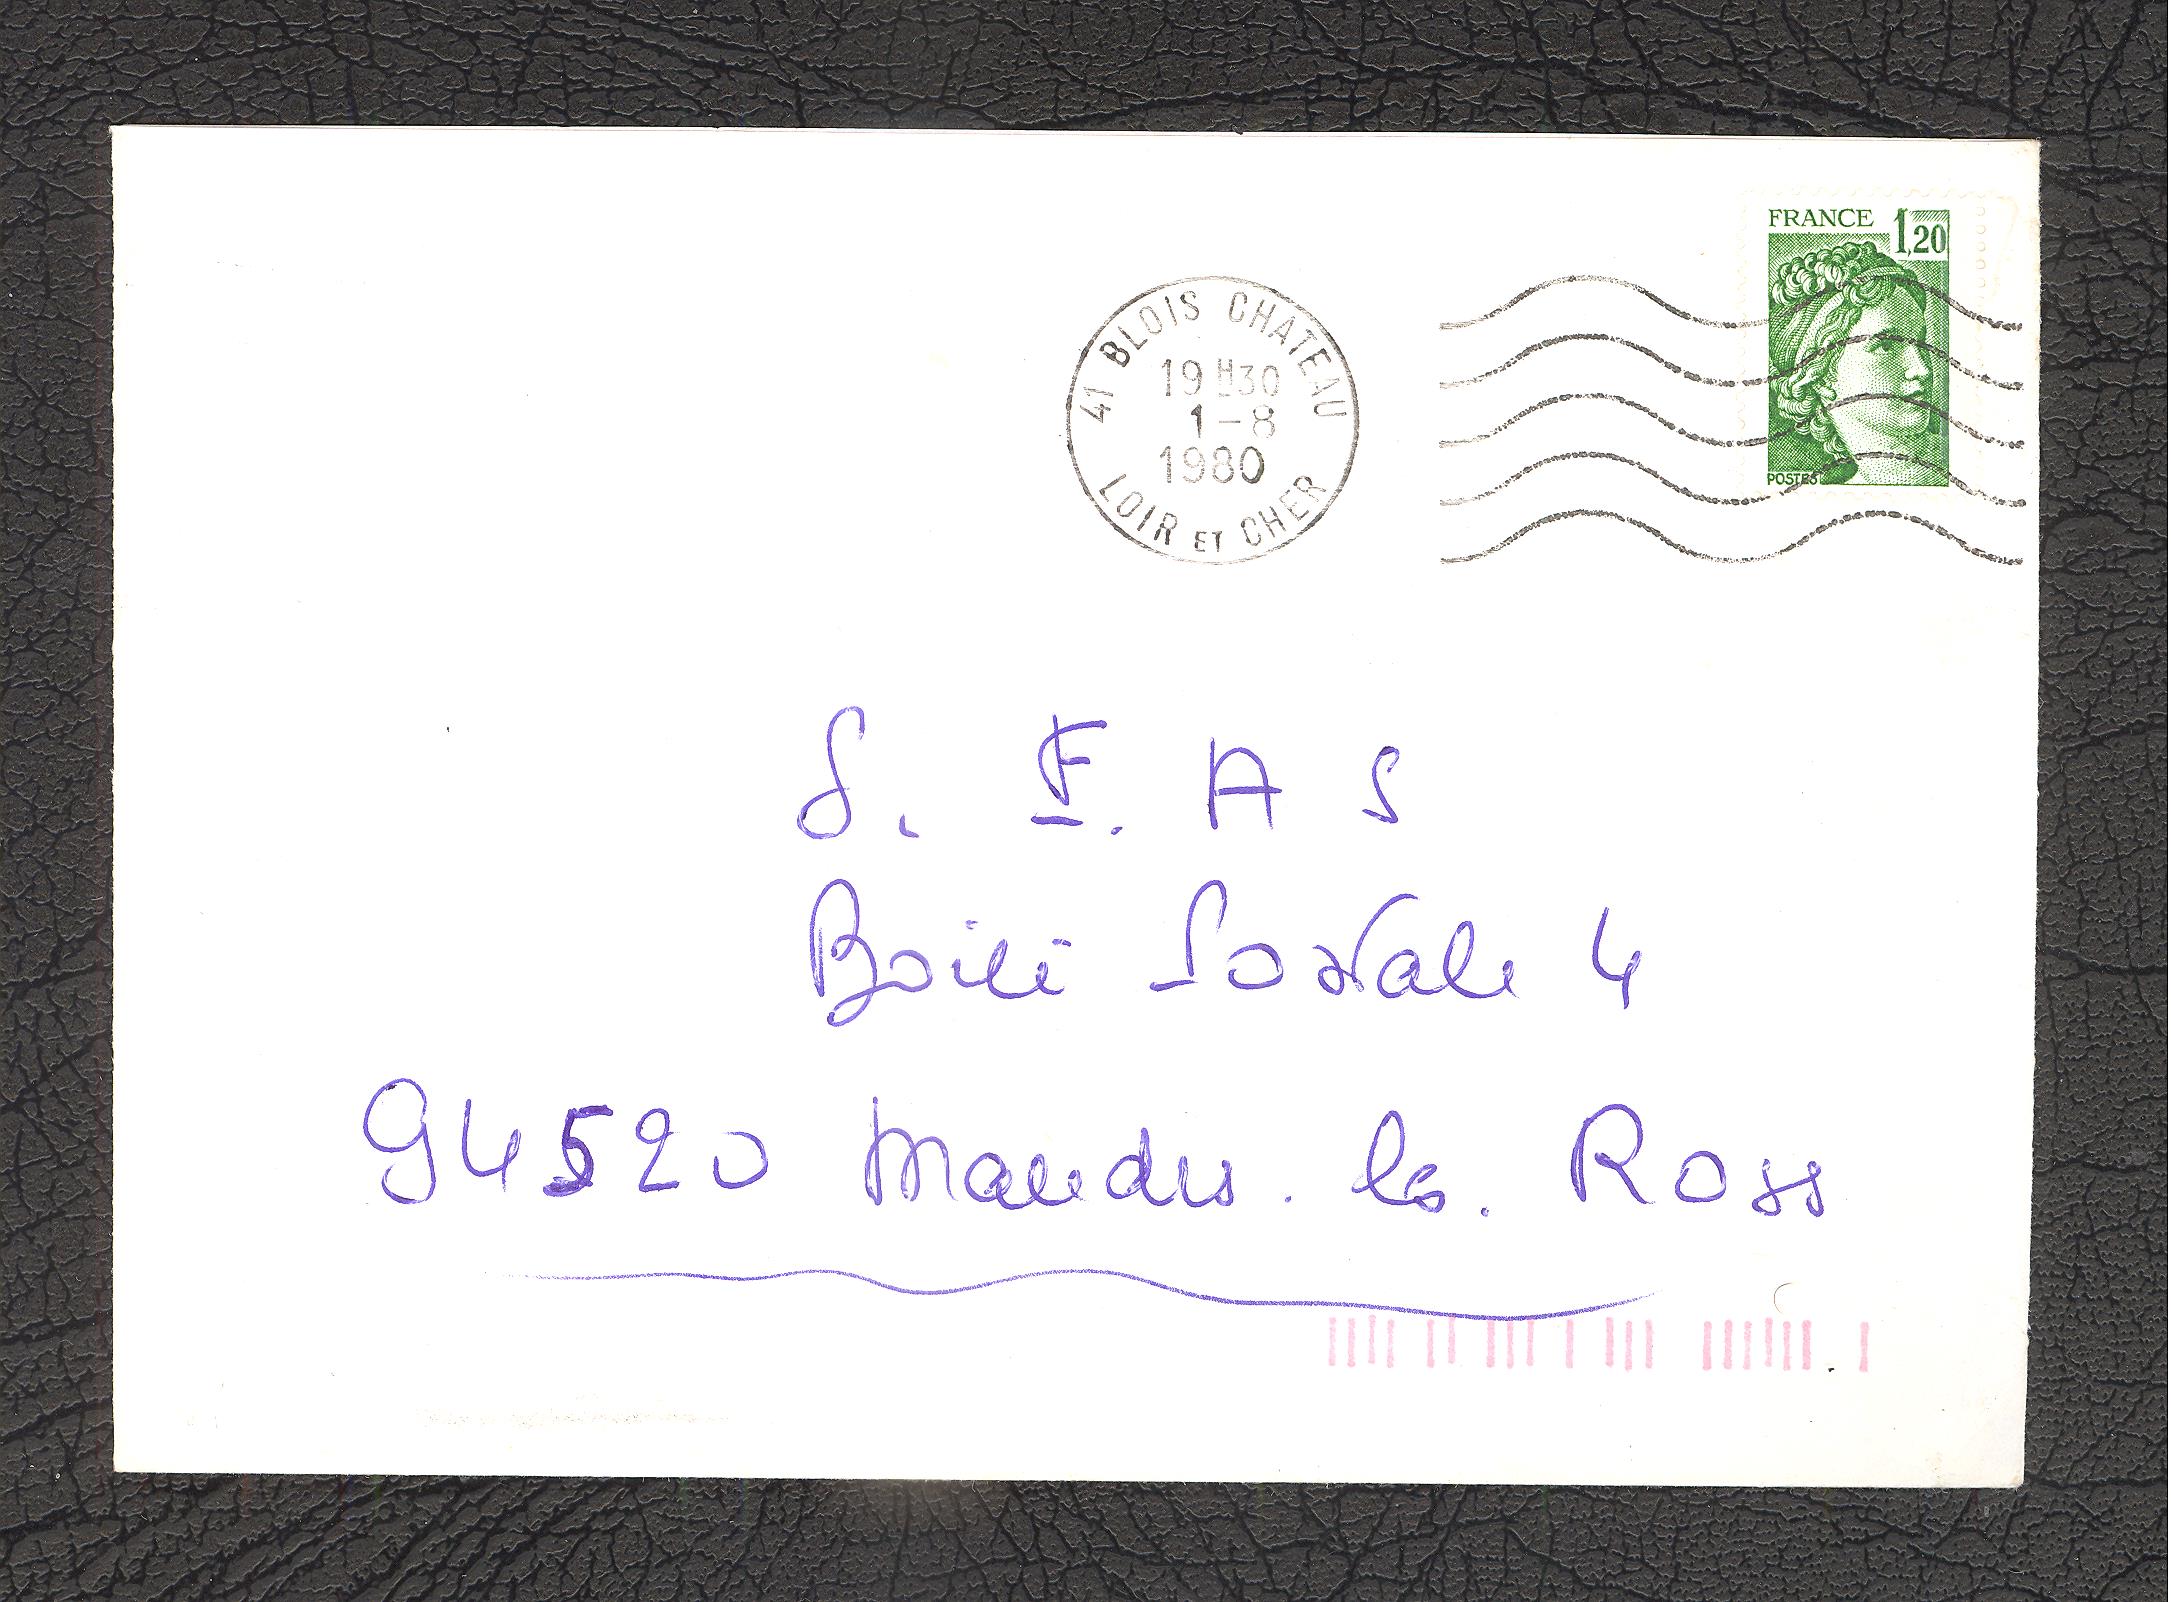 FRANCE 1,20
POSTES
41 BLOIS CHATEAU
19 H30
1-8
1980
LOIR ET CHER
S. F. A S
Boite Postale 4
94520 Mandres. les. Roses